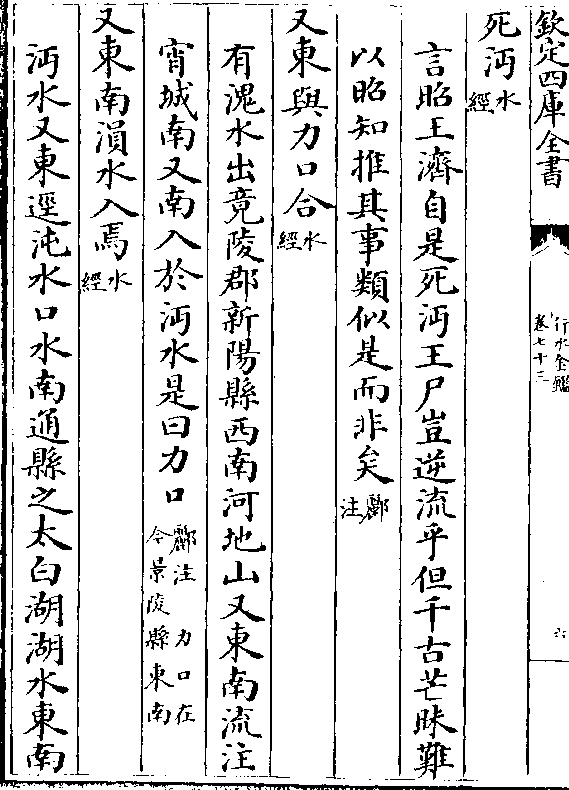 欽定四庫全書
行水金鑑
卷七十三
六
死沔水經
言昭王濟自是死沔王尸豈逆流乎但千古茫昧難
以昭知推其事類似是而非矣酈注
又東與力口合水經
有溾水出竟陵郡新陽縣西南河地山又東南流注
宵城南又南入於沔水是曰力口酈注力口在今景陵縣東南
又東南溳水入焉水經
沔水又東逕沌水口水南通縣之太白湖湖水東南